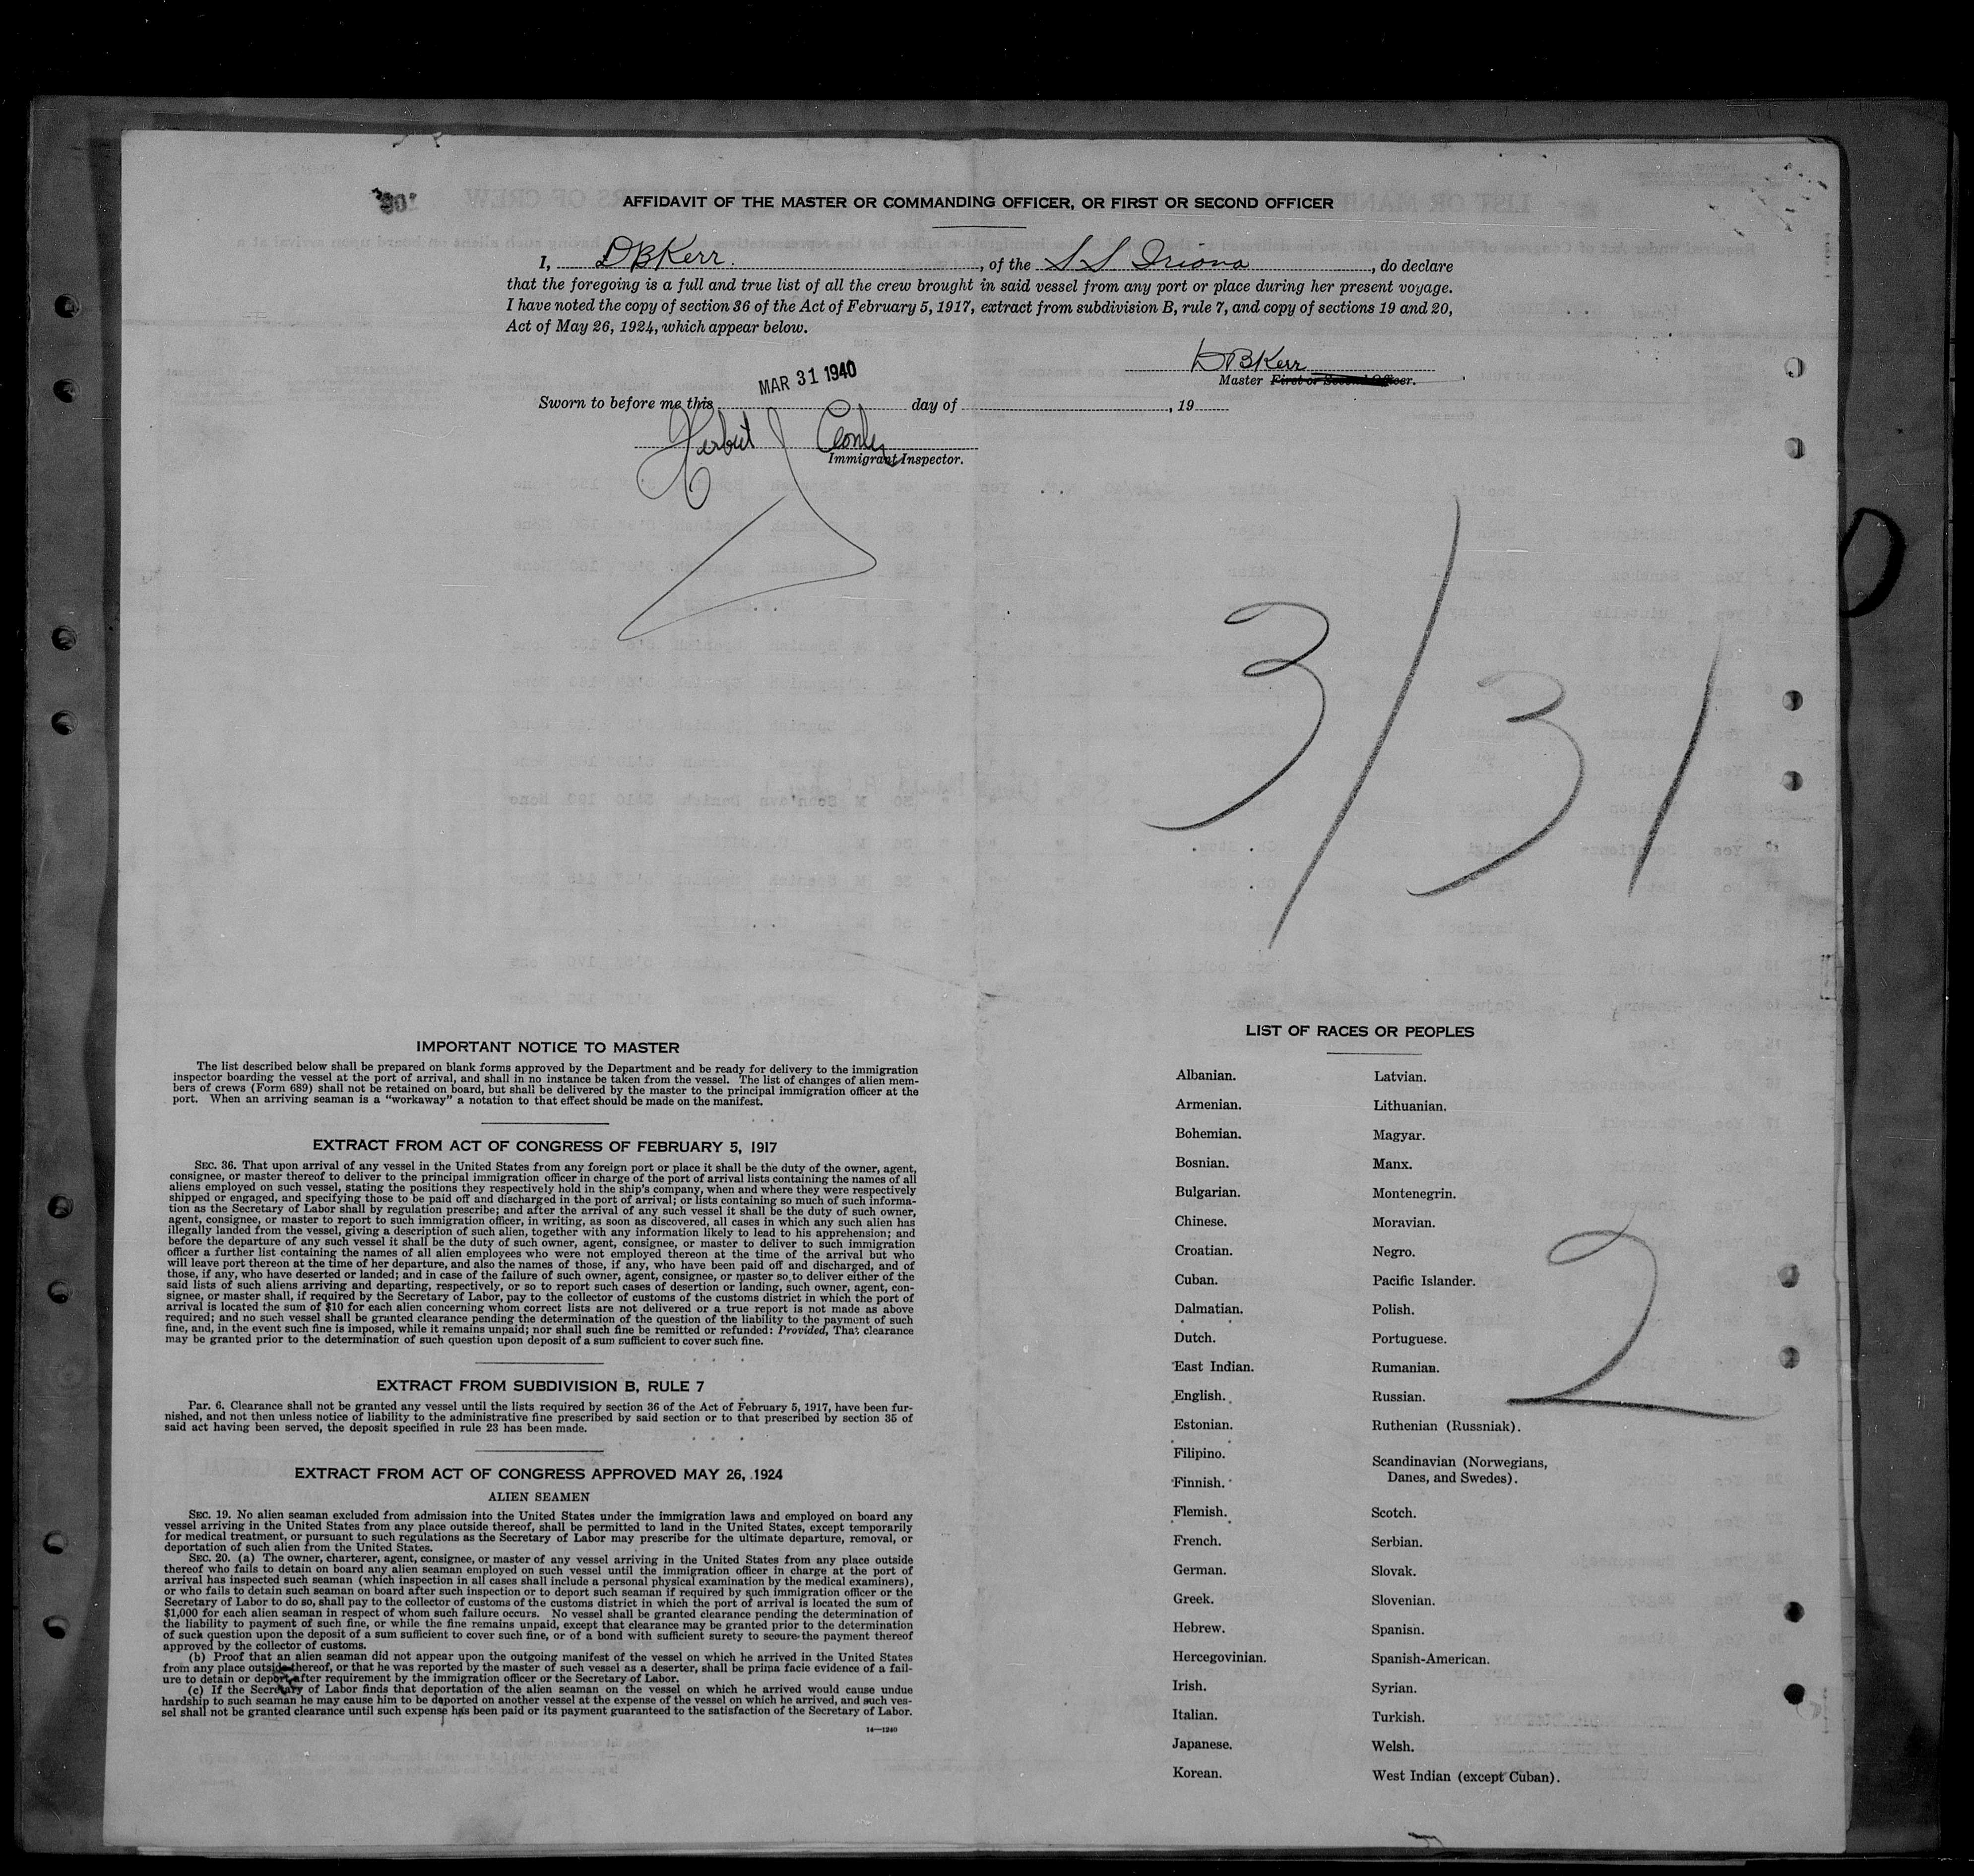 AFFIDAVIT OF THE MASTER OR COMMANDING OFFICER, OR FIRST OR SECOND OFFICER
I, D B Kerr., of the S S Iriona, do declare
that the foregoing is a full and true list of all the crew brought in said vessel from any port or place during her present voyage.
I have noted the copy of section 36 of the Act of February 5, 1917, extract from subdivision B, rule 7, and copy of sections 19 and 20,
Act of May 26, 1924, which appear below.
D B Kerr
Master First or Second Officer.
MAR 31 1940
Sworn to before me this day of , 19
Herbert J
Immigrant Inspector.
3/31
2
IMPORTANT NOTICE TO MASTER
The list described below shall be prepared on blank forms approved by the Department and be ready for delivery to the immigration
inspector boarding the vessel at the port of arrival, and shall in no instance be taken from the vessel. The list of changes of alien mem-
bers of crews (Form 689) shall not be retained on board, but shall be delivered by the master to the principal immigration officer at the
port. When an arriving seaman is a "workaway" a notation to that effect should be made on the manifest.
EXTRACT FROM ACT OF CONGRESS OF FEBRUARY 5, 1917
SEC. 36. That upon arrival of any vessel in the United States from any foreign port or place it shall be the duty of the owner, agent,
consignee, or master thereof to deliver to the principal immigration officer in charge of the port of arrival lists containing the names of all
aliens employed on such vessel, stating the positions they respectively hold in the ship's company, when and where they were respectively
shipped or engaged, and specifying those to be paid off and discharged in the port of arrival; or lists containing so much of such informa-
tion as the Secretary of Labor shall by regulation prescribe; and after the arrival of any such vessel it shall be the duty of such owner,
agent, consignee, or master to report to such immigration officer, in writing, as soon as discovered, all cases in which any such alien has
illegally landed from the vessel, giving a description of such alien, together with any information likely to lead to his apprehension; and
before the departure of any such vessel it shall be the duty of such owner, agent, consignee, or master to deliver to such immigration
officer a further list containing the names of all alien employees who were not employed thereon at the time of the arrival but who
will leave port thereon at the time of her departure, and also the names of those, if any, who have been paid off and discharged, and of
those, if any, who have deserted or landed; and in case of the failure of such owner, agent, consignee, or master so to deliver either of the
said lists of such aliens arriving and departing, respectively, or so to report such cases of desertion or landing, such owner, agent, con-
signee, or master shall, if required by the Secretary of Labor, pay to the collector of customs of the customs district in which the port of
arrival is located the sum of $10 for each alien concerning whom correct lists are not delivered or a true report is not made as above
required; and no such vessel shall be granted clearance pending the determination of the question of the liability to the payment of such
fine, and, in the event such fine is imposed, while it remains unpaid; nor shall such fine be remitted or refunded: Provided, That clearance
may be granted prior to the determination of such question upon deposit of a sum sufficient to cover such fine.
EXTRACT FROM SUBDIVISION B, RULE 7
Par. 6. Clearance shall not be granted any vessel until the lists required by section 36 of the Act of February 5, 1917, have been fur-
nished, and not then unless notice of liability to the administrative fine prescribed by said section or to that prescribed by section 35 of
said act having been served, the deposit specified in rule 23 has been made.
EXTRACT FROM ACT OF CONGRESS APPROVED MAY 26, 1924
ALIEN SEAMEN
SEC. 19. No alien seaman excluded from admission into the United States under the immigration laws and employed on board any
vessel arriving in the United States from any place outside thereof, shall be permitted to land in the United States, except temporarily
for medical treatment, or pursuant to such regulations as the Secretary of Labor may prescribe for the ultimate departure, removal, or
deportation of such alien from the United States.
SEC. 20. (a) The owner, charterer, agent, consignee, or master of any vessel arriving in the United States from any place outside
thereof who fails to detain on board any alien seaman employed on such vessel until the immigration officer in charge at the port of
arrival has inspected such seaman (which inspection in all cases shall include a personal physical examination by the medical examiners),
or who fails to detain such seaman on board after such inspection or to deport such seaman if required by such immigration officer or the
Secretary of Labor to do so, shall pay to the collector of customs of the customs district in which the port of arrival is located the sum of
$1,000 for each alien seaman in respect of whom such failure occurs. No vessel shall be granted clearance pending the determination of
the liability to payment of such fine, or while the fine remains unpaid, except that clearance may be granted prior to the determination
of such question upon the deposit of a sum sufficient to cover such fine, or of a bond with sufficient surety to secure the payment thereof
approved by the collector of customs.
(b) Proof that an alien seaman did not appear upon the outgoing manifest of the vessel on which he arrived in the United States
from any place outside thereof, or that he was reported by the master of such vessel as a deserter, shall be prima facie evidence of a fail-
ure to detain or deport after requirement by the immigration officer or the Secretary of Labor.
(c) If the Secretary of Labor finds that deportation of the alien seaman on the vessel on which he arrived would cause undue
hardship to such seaman he may cause him to be deported on another vessel at the expense of the vessel on which he arrived, and such ves-
sel shall not be granted clearance until such expense has been paid or its payment guaranteed to the satisfaction of the Secretary of Labor.
14—1240
LIST OF RACES OR PEOPLES
Albanian.
Armenian.
Bohemian.
Bosnian.
Bulgarian.
Chinese.
Croatian.
Cuban.
Dalmatian.
Dutch.
East Indian.
English.
Estonian.
Filipino.
Finnish.
Flemish.
French.
German.
Greek.
Hebrew.
Hercegovinian.
Irish.
Italian.
Japanese.
Korean.
Latvian.
Lithuanian.
Magyar.
Manx.
Montenegrin.
Moravian.
Negro.
Pacific Islander.
Polish.
Portuguese.
Rumanian.
Russian.
Ruthenian (Russniak).
Scandinavian (Norwegians,
Danes, and Swedes).
Scotch.
Serbian.
Slovak.
Slovenian.
Spanisn.
Spanish-American.
Syrian.
Turkish.
Welsh.
West Indian (except Cuban).